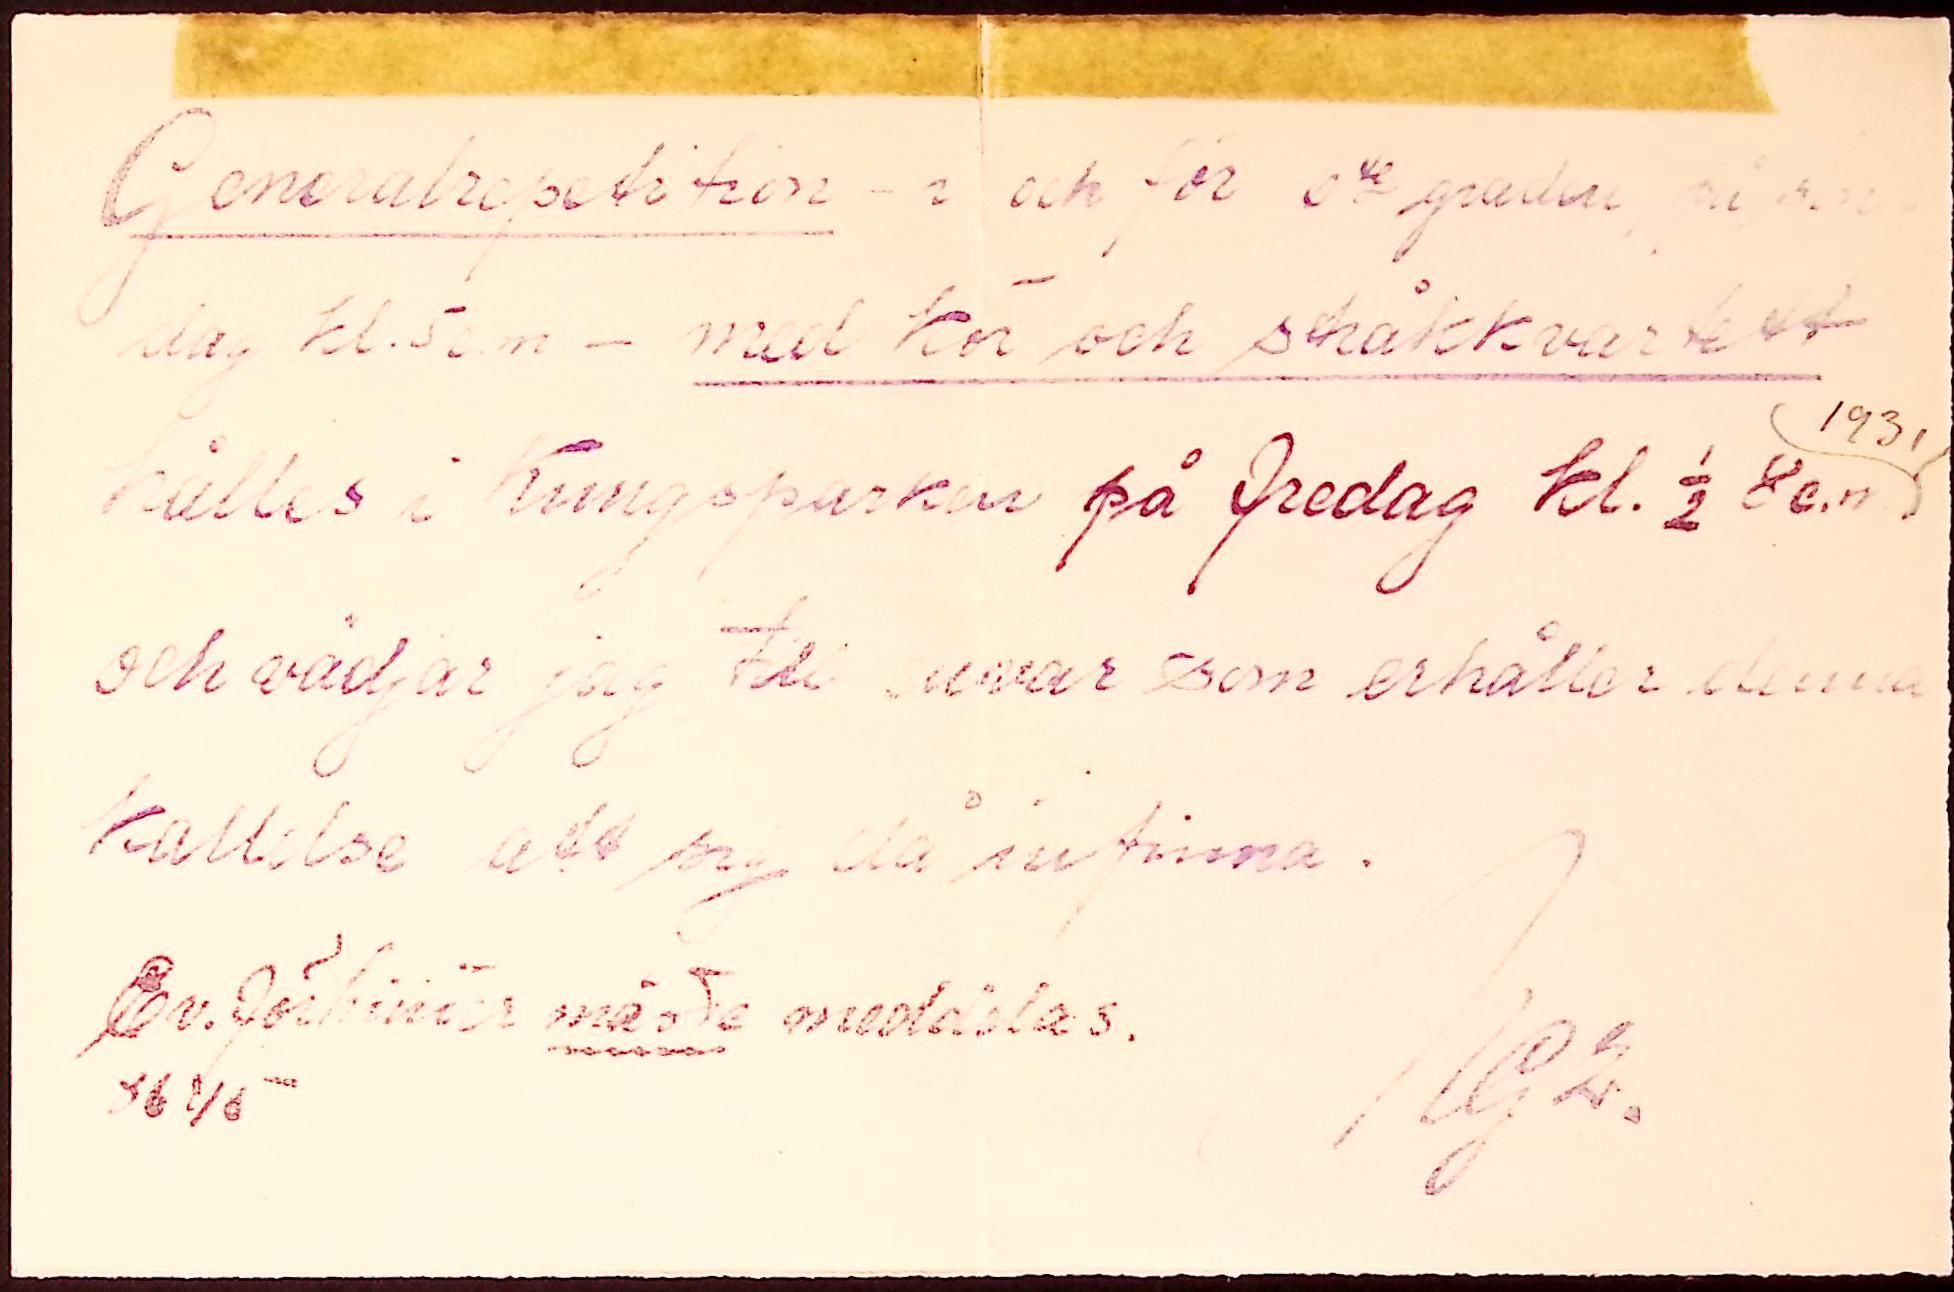 Generalrepetition – i och för 6te graden, på sön-
dag kl. 5 e.m – med kör och stråkkvartett
hålles i Kungsparken på Fredag kl. ½ 8 e.m
1931
och vädjar jag till envar som erhåller denna
kallelse att sig då infinna.
Ev. förhinder måste meddelas.